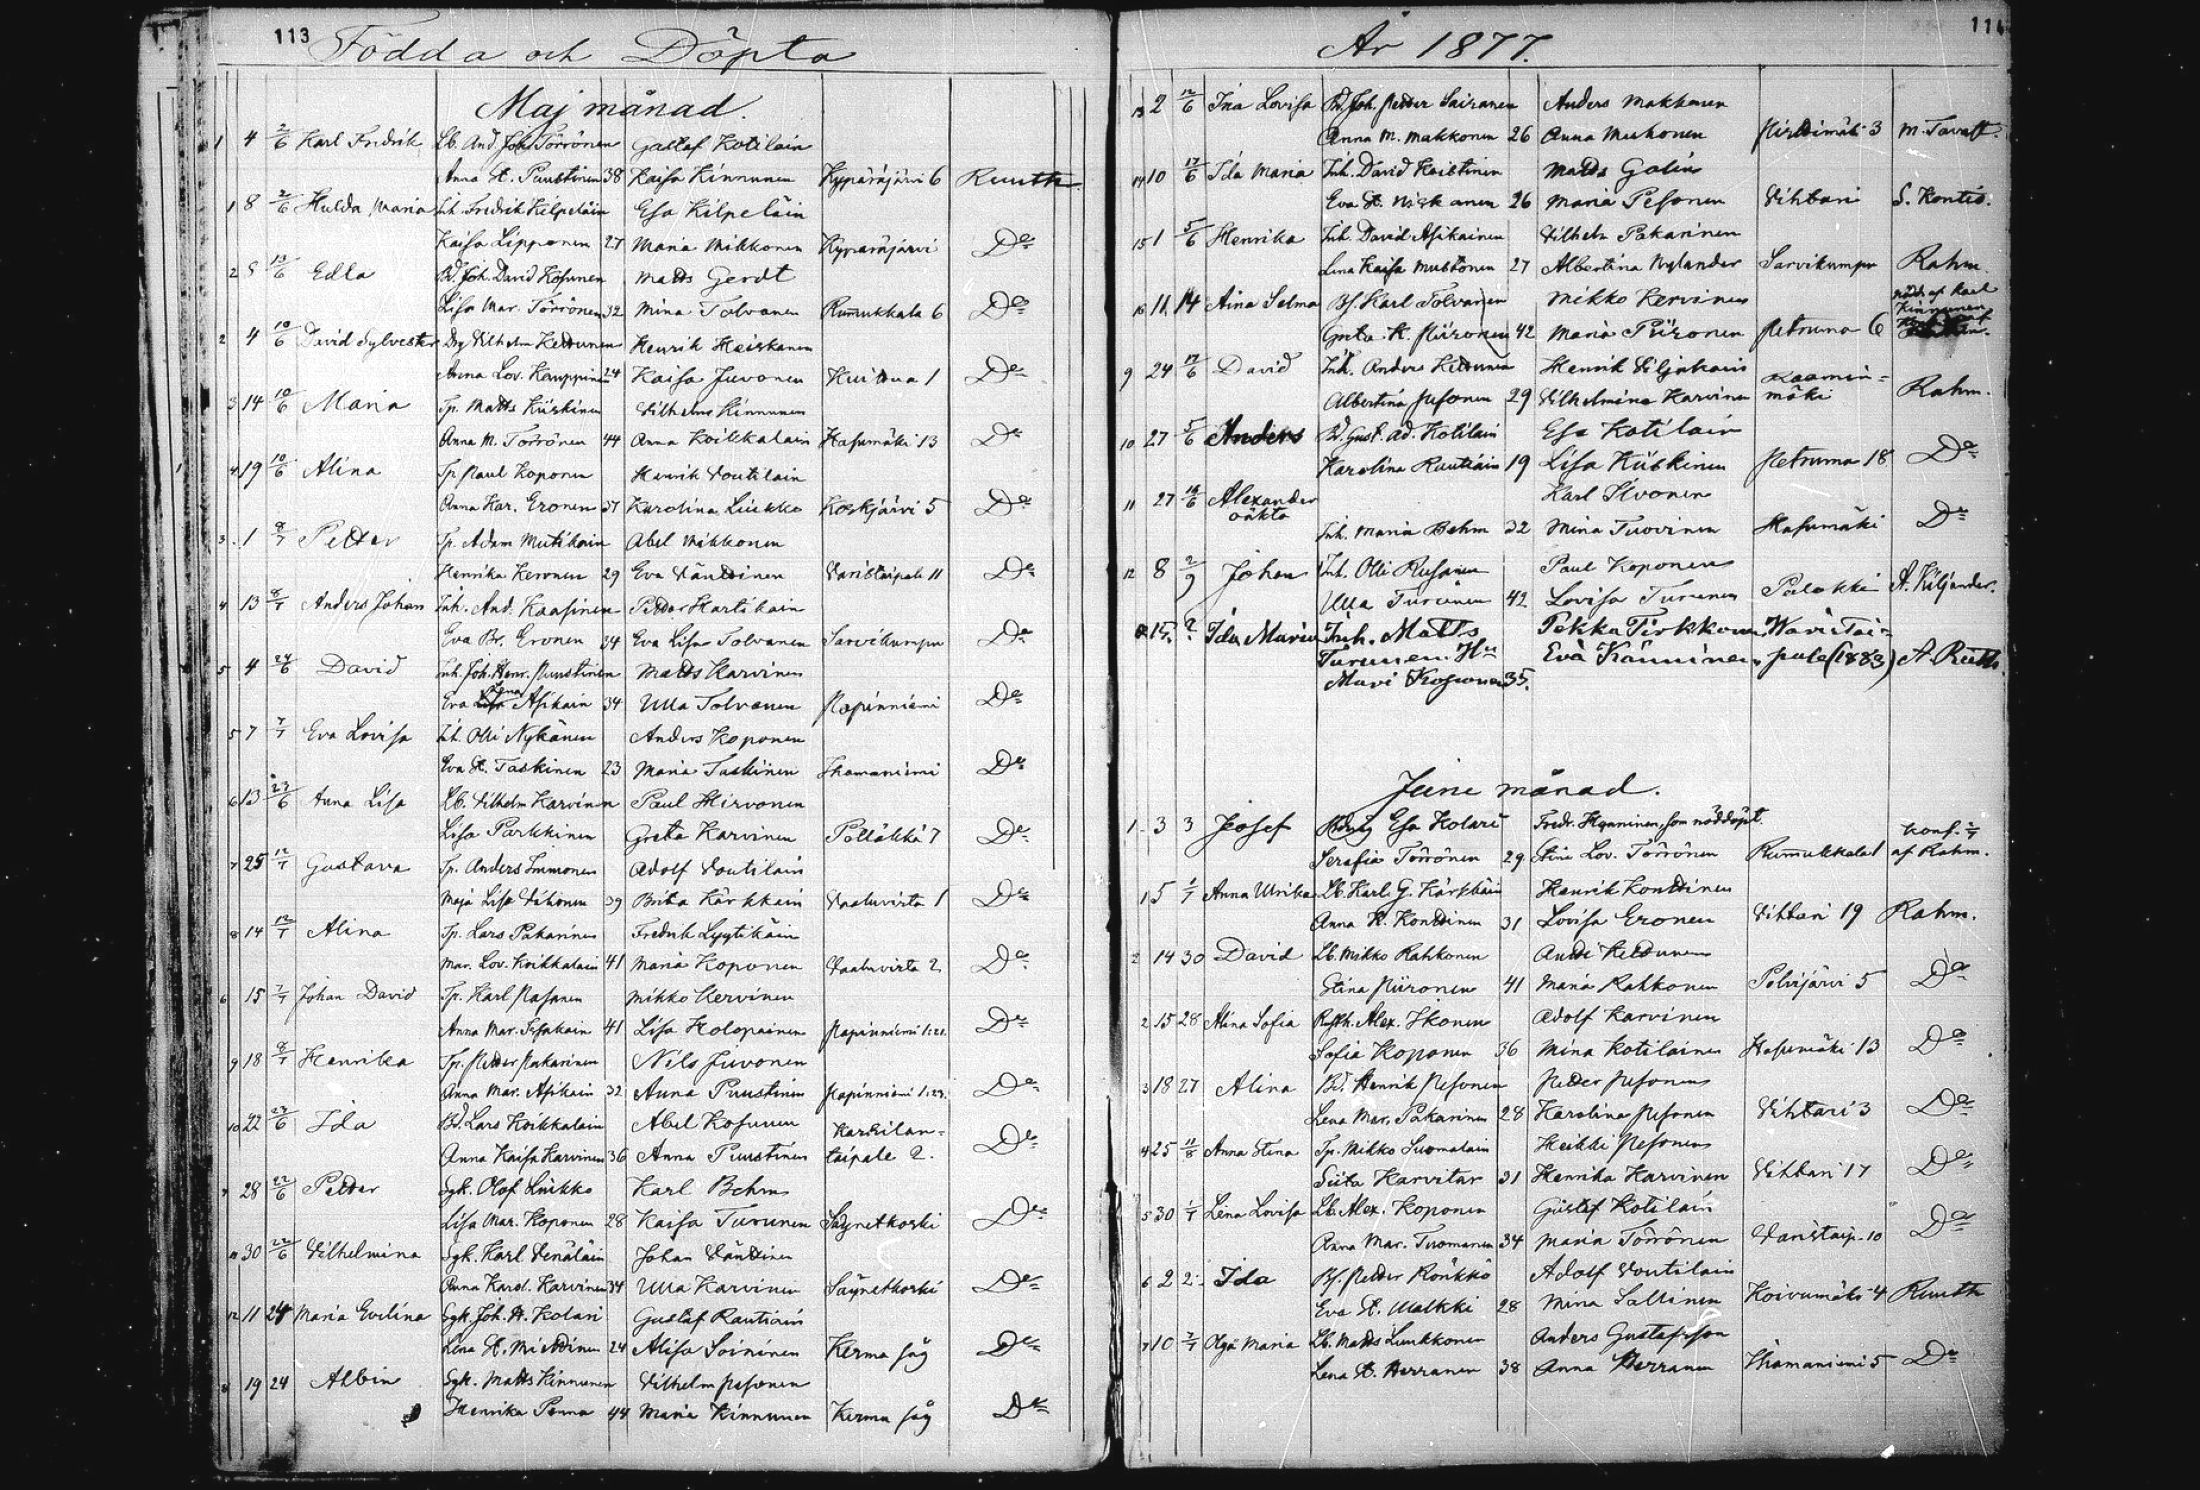 113
Födda och Döpta
Maj månad.
1 4 2/6 Karl Fredrik Lb. And. Joh. Törrönen Gustaf Kotilain
Anna St. Puustinen 38 Kaisa Kinnunen Kypäräjärvi 6 Ruuth
1 8 2/6 Hulda Maria Inh. Fredrik Kilpeläin Esa Kilpeläin
Kaisa Lipponen 27 Maria Mikkonen Kypäräjärvi Do
2 8 13/6 Edla Bd. Joh. David Kosunen Matts Gerdt
Lisa Mar. Törrönen 32 Mina Tolvanen Rummukkala 6 Do
2 4 10/6 David Sylvester Drg Vilhelm Kettunen Henrik Heiskanen
Anna Lov. Kauppinen 24 Kaisa Juvonen 1 Do
3 14 10/6 Maria Tp. Matts Kiiskinen Vilhelm Kinnunen
Anna M. Törrönen 44 Anna Koikkalain Hasumäki 13 Do
4 19 10/6 Alina Tp Paul Koponen Henrik Voutilain
Anna Kar. Eronen 37 Karolina Liukko Koskjärvi 5 Do
3 1 8/7 Petter Tp. Adam Mutikain Abel Mikkonen
Henrika Keronen 29 Eva Väntinen Varistaipale 11 Do
4 13 8/7 Anders Johan Inh. And. Kaasinen Petter Hartikain
Eva Br. Eronen 34 Eva Lisa Tolvanen Sarvikumpu Do
5 4 24/6 David Inh. Joh. Henr. Puustinen Matts Karvinen
Eva Lena Asikain 34 Ulla Tolvanen Papinniemi Do
5 7 7/7 Eva Lovisa Inh. Olli Nykänen Anders Koponen
Eva St. Taskinen 23 Maria Taskinen Ihamaniemi Do
6 13 23/6 Anna Lisa Lb. Vilhelm Karvinen Paul Hirvonen
Lisa Parkkinen Greta Karvinen Pölläkkä 7 Do
7 25 12/7 Gustava Tp. Anders Immonen Adolf Voutilain
Maja Lisa Vihonen 39 Brita Kärkkäin Vaaluvirta 1 Do
8 14 12/7 Alina Tp. Lars Pakarinen Fredrik Lyytikäin
Mar. Lov. Koikkalain 41 Maria Koponen Vaaluvirta 2 Do
6 15 7/7 Johan David Tp. Karl Pasanen Mikko Kervinen
Anna Mar. 41 Lisa Holopainen Papinniemi 1:21. Do
9 18 8/7 Henrika Tp. Petter Pakarinen Nils Juvonen
Anna Mar. Asikain 32 Anna Puustinen Papinniemi Do
10 22 23/6 Ida Bd. Lars Koikkalain Abel Kosunen Karvilan-
Anna Kaisa Karvinen 36 Anna Puustinen taipale 2. Do
7 28 22/6 Petter Sgk. Olof Liukko Karl Behm
Lisa Mar. Koponen 28 Kaisa Turunen Säynetkoski Do
11 30 22/6 Vilhelmina Sgk. Karl Venäläin Johan Väntinen
Anna Karol. Karvinen 34 Ulla Karvinen Säynetkoski Do
12 11 24 Maria Evelina Sgk. Joh. H. Kolari Gustaf Rautiain
Lena St. Miettinen 24 Alisa Soininen Kerma såg Do
8 19 24 Albin Sgk. Matts Kinnunen Vilhelm Pesonen
Henrika Penna 44 Maria Kinnunen Kerma såg Do
114
År 1877.
13 2 12/6 Ina Lovisa Bd. Joh. Petter Sairanen Anders Makkonen
Anna M. Makkonen 26 Anna Muhonen 3 M. Tavast.
14 10 17/6 Ida Maria Inh. David Koistinen Matts Golin
Eva St. Niskanen 26 Maria Pesonen Vihtari S. Kontio.
15 1 5/6 Henrika Inh. David Asikainen Vilhelm Pakarinen
Lena Kaisa Mustonen 27 Albertina Nylander Sarvikumpu Rahm.
16 11 14 Aina Selma Bs. Karl Tolvanen Mikko Kervinen nöd. af Karl Kinnunen
Greta K. Piironen 42 Maria Piironen Petruma 6
9 24 17/6 David Inh. Anders Kettunen Henrik Viljakain Raamin-
Albertina Pesonen 29 Vilhelmina Karvinen mäki Rahm.
10 27 5/6 Anders Bd. Gust. Ad. Kotilain Esa Kotilain
Karolina Rautiain 19 Lisa Kiiskinen Petruma 18 Do
11 27 16/6 Alexander oäkta Karl Iivonen
Inh. Maria Behm 32 Mina Tuovinen Hasumäki Do
12 8 2/9 Johan Inh. Olli Rusanen Paul Koponen
Ulla Turunen 42 Lovisa Turunen Palokki A. Kiljander.
15. ? Ida Maria Inh. Matts Pekka Tirkkonen Waristai-
Turunen Hu Eva Känninen pale (1883) A. Ruth.
Mari Kosonen 35.
Juni månad.
1 3 3 Josef Esa Kolari Fredr. Hynninen, som nöddöpt.
Serafia Törrönen 29 Stina Lov. Törrönen Rummukkala 1 konf. 2/7 af Rahm.
1 5 1/7 Anna Ulrika Lb. Karl G. Kärkkäin Henrik Konttinen
Anna K. Konttinen 31 Lovisa Eronen Vihtari 19 Rahm.
2 14 30 David Lb. Mikko Rahkonen Antti Kettunen
Stina Piironen 41 Maria Rahkonen Polvijärvi 5 Do
2 15 28 Alina Sofia Alex. Ikonen Adolf Karvinen
Sofia Koponen 36 Mina Kotilainen Hasumäki 13 Do
3 18 27 Alina Bd. Henrik Pesonen Petter Pesonen
Lena Mar. Pakarinen 28 Karolina Pesonen Vihtari 3 Do
4 25 11/8 Anna Stina Tp. Mikko Suomalain Heikki Pesonen
Karvitar 31 Henrika Karvinen Vihtari 17 Do
5 30 1/7 Lena Lovisa Lb. Alex. Koponen Gustaf Kotilain
Anna Mar. Tuomanen 34 Maria Törrönen Varistaip. 10 Do
6 2 2 Ida Bs. Petter Rönkkö Adolf Voutilain
Eva St. Malkki 28 Mina Sallinen Koivumäki 4 Ruuth
7 10 2/7 Olga Maria Lb. Matts Luukkonen Anders Gustafsson
Lena St. Herranen 38 Anna Herranen Ihamaniemi 5 Do